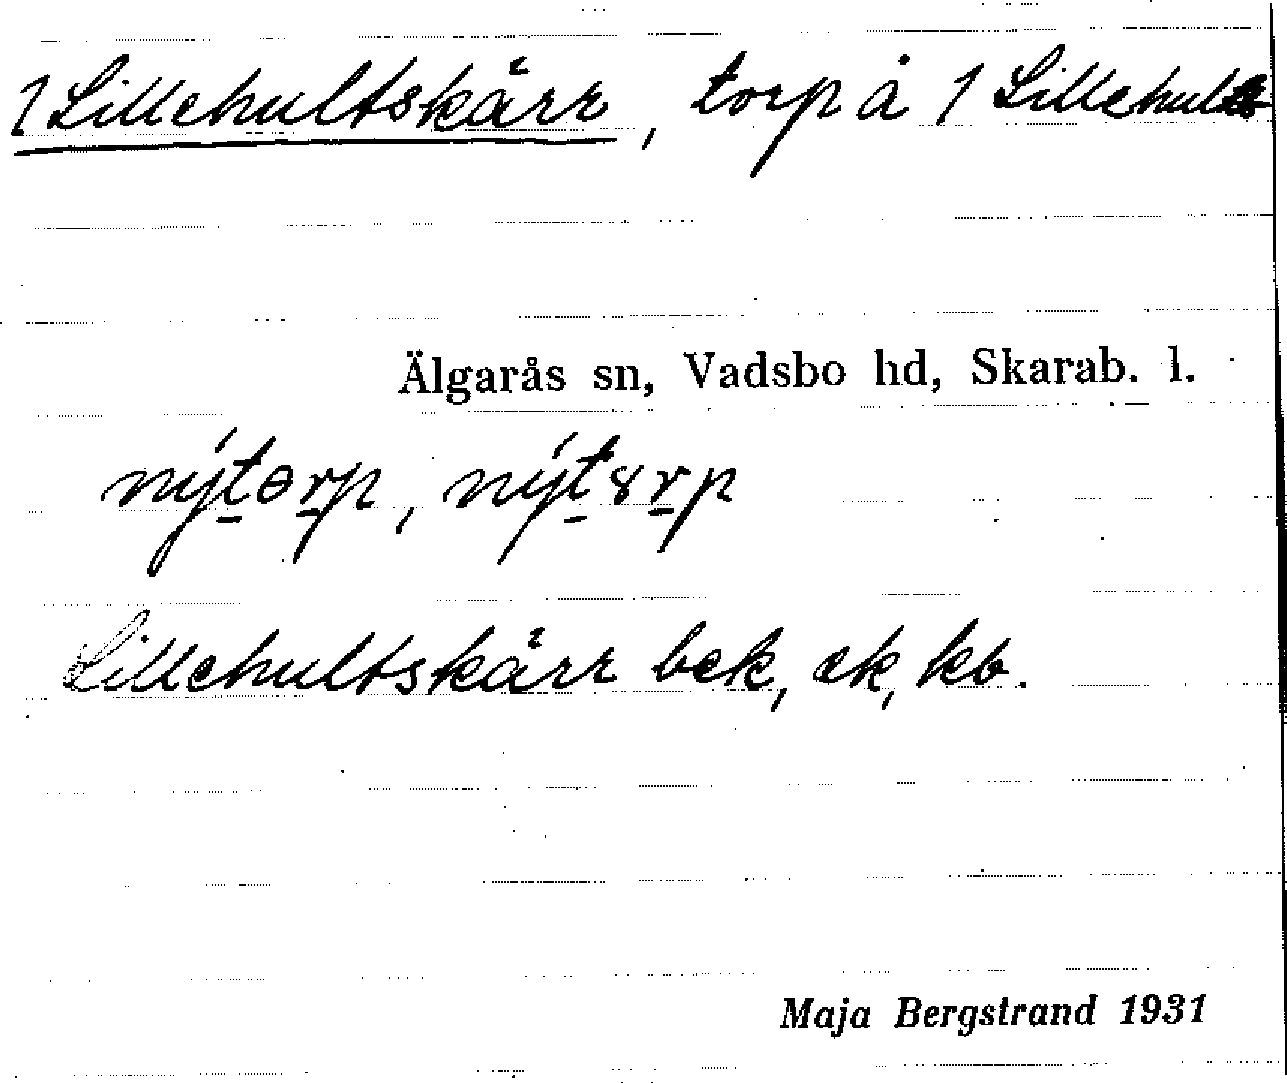 1 Lillehultskärr, torp å 1 Lillehult
Älgarås sn, Vadsbo hd, Skarab. l.
nýt̲ɵr̲p, nýt̲8r̲p
Lillehultskärr bek, ek, kb.
Maja Bergstrand 1931